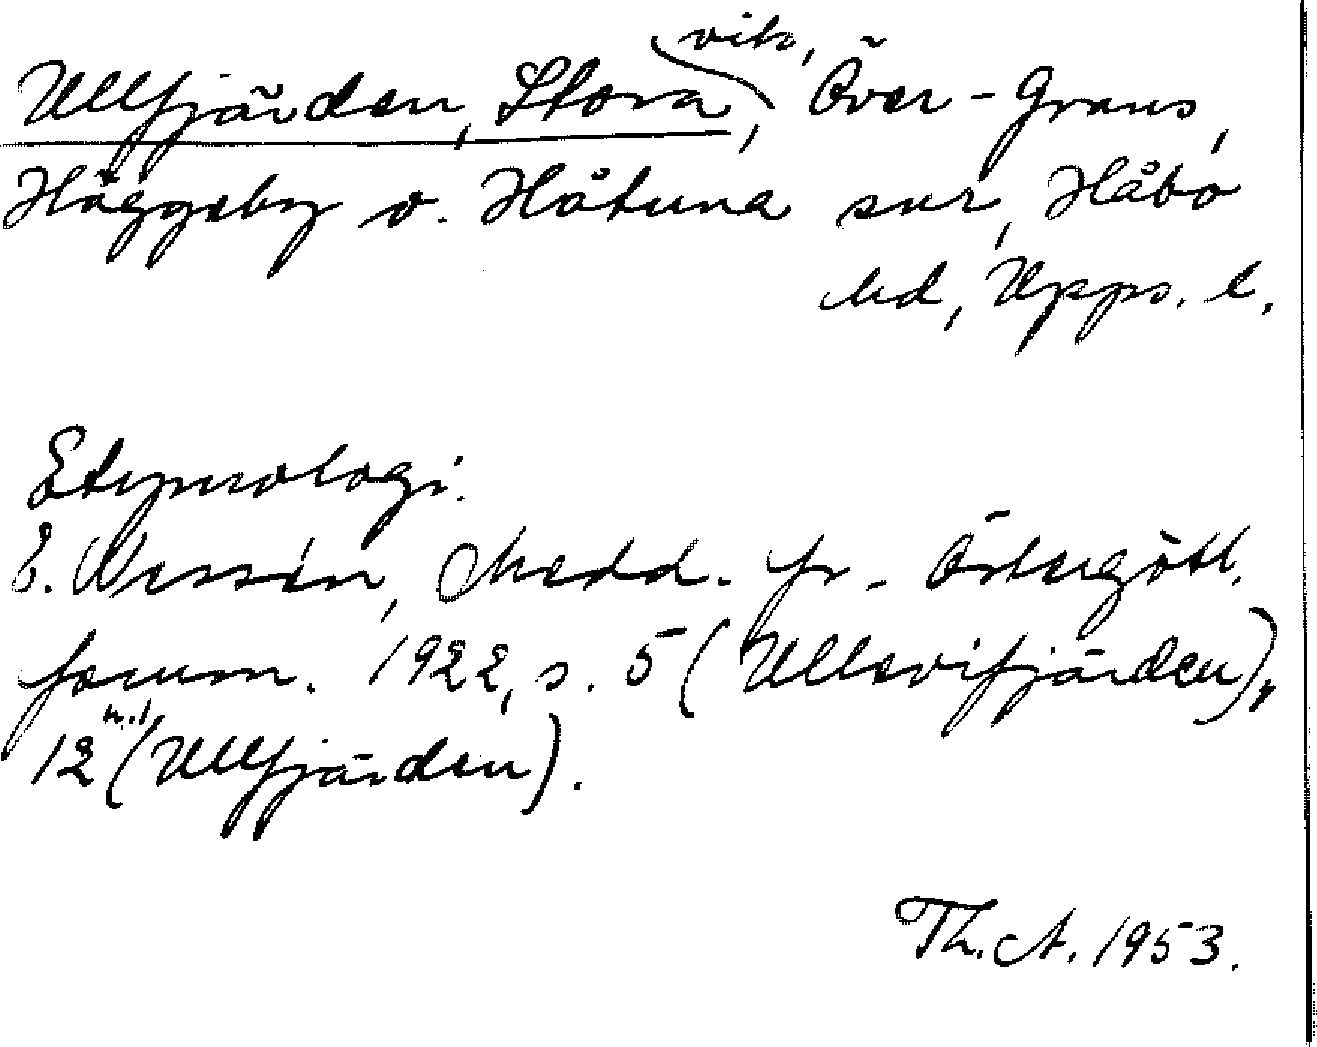 Ullfjärden, Stora, vik, Över-Grans,
Häggeby o. Håtuna snr, Håbo
hd, Upps. l.
Etymologi.
E. Wessén, Medd. fr. Östergötl.
fornm. 1922, s. 5 (Ullevifjärden),
12 n. 1 (Ullfjärden).
Th. A. 1953.